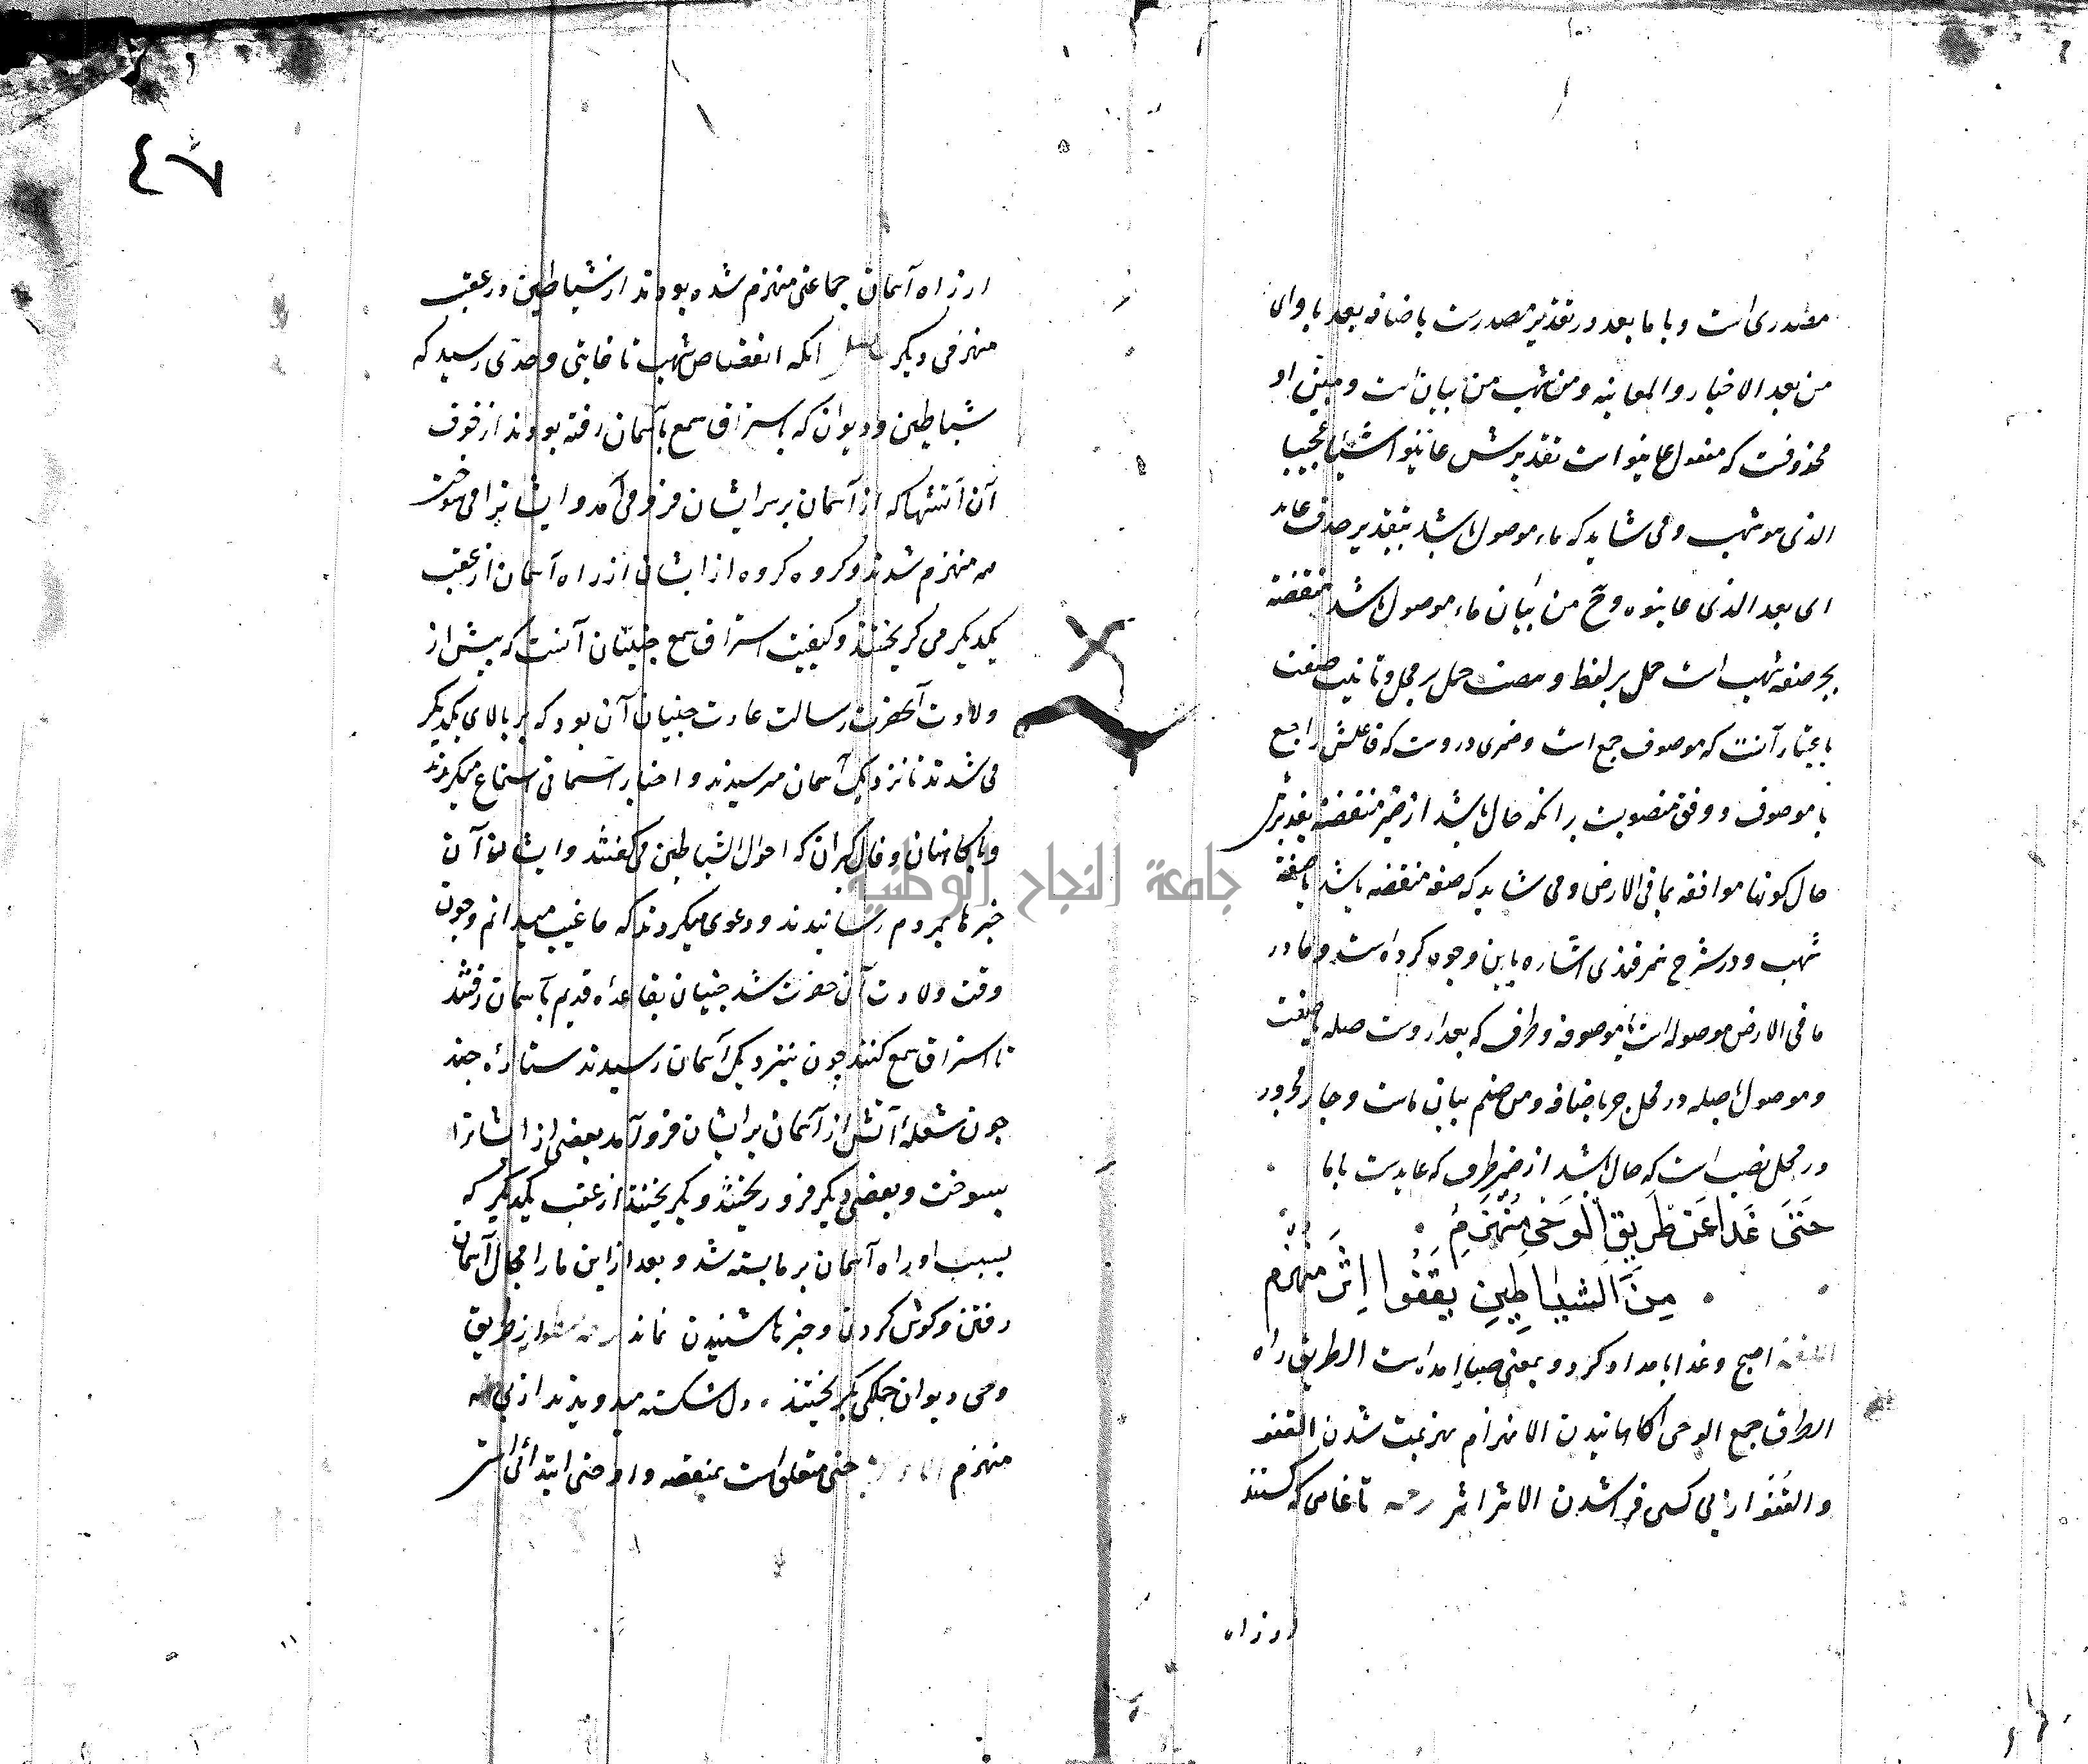 مصدری است و با ما بعد در تقدیر مصدرست باضافه بعد با و ای
من بعد الاخبار و المعاینه و من شهب من بیان است و مبین او
محذوفست که مفعول عاینوا است تقدیرش عاینوا شیئا عجیبا
الذی هو شهب و می شاید که ماء موصول باشد بتقدیر حذف عاید
ای بعد الذی عاینوه و ح من بیان ماء موصول باشد منقضة
بجر صفه شهب است حمل بر لفظ و نصب حمل بر محل و تانیث صفت
باعتبار آنست که موصوف جمع است و ضمیری دروست که فاعلش راجع
با موصوف و وفق منصوبست برانکه حال باشد از ضمیر منقضة تقدیرش
حال کونها موافقه بما فی الارض و می شاید که صفه منقضه باشد یا صفة
شهب و در شرح سمرقندی اشاره باین وجوه کرده است و ما در
ما فی الارض موصوله است یا موصوفه و ظرف که بعد اروست صله یا صفت
و موصول با صله در محل جر باضافه و من صنم بیان ماست و جار مجرور
در محل نصب است که حال باشد از ضمیر ظرف که عایدست باما
حَتّى غَدا عَن طَرِيقِ الوَحْىِ مُنْهَزِمٌ
مِنَ الشياطِينِ يَقفُوا اِثرَ مُنْهَزِم
اللغة اصبح و غدا بامداد کرد و بمعنی صار امداست الطریق راه
الطرق جمع الوحی اکاهانیدن الانهزام هزیمت شدن القفو
و القُفُوّ از پی کسی فرا شدن الاثر اثر رحمه تا غایتی که کشتند
از راه
٤٧
از راه آسمان جماعتی منهزم شده بودند از شیاطین در عقب
منهزمی دیکر حاصل آنکه انقضاض شهب تا غایتی و حدّی رسید که
شیاطین و دیوان که باستراق سمع بآسمان رفته بودند از خوف
آن آتشها که از آسمان بر سر ایشان فرو می آمد و ایشانرا می سوخت
همه منهزم شدند و کروه کروه از ایشان از راه آسمان از عقب
یکدیکر می کریختند و کیفیت استراق سمع جنیّان آنست که پیش از
ولادت آنحضرت رسالت عادت جنیان آن بود که بر بالای یکدیکر
می شدند تا نزدیک آسمان می رسیدند و اخبار آسمانی استماع میکردند
و با کاهنان و فال کیران که اخوان الشیاطین می کفتند و ایشان آن
خبرها بمردم رسانیدند و دعوی میکردند که ما غیب میدانم و چون
وقت ولادت آن حضرت شد جنیان بقاعده قدیم بآسمان رفتند
تا استراق سمع کنند چون بنزدیک آسمان رسیدند ستاره چند
چون شعله آتش از آسمان بر ایشان فرو آمد بعضی از ایشانرا
بسوخت و بعضی دیکر فرو ریختند و بکریختند از عقب یکدیکر که
بسبب او راه آسمان بر ما بسته شد و بعد از این ما را مجال آسمان
رفتن و کوش کردن و خبرها شنیدن نماند از طریق
وحی دیوان جملکی بکریختند دل شکسته میدویدند از پی
منهزم حتی متعلق است بمنقضه و او حتی ابتدائی است
جامعة النجاح الوطنية